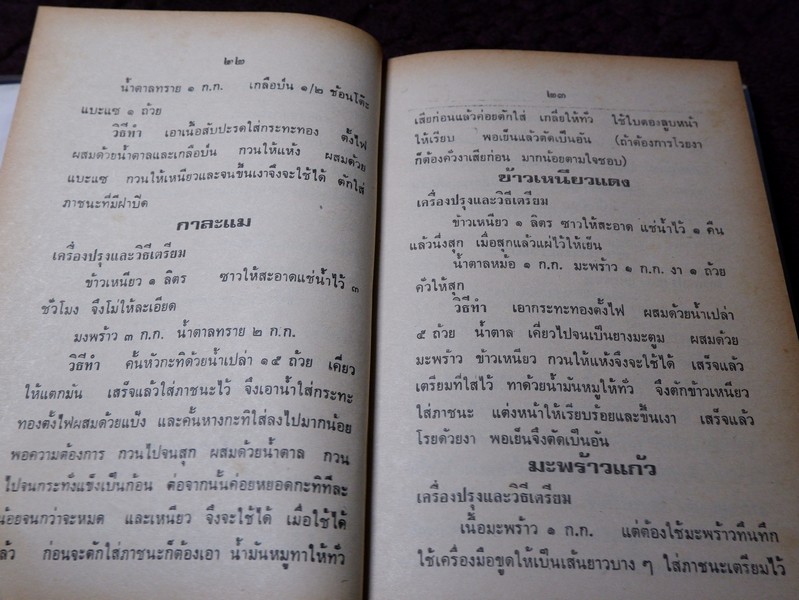 ๒๒
น้ำตาลทราย ๑ ก.ก. เกลือป่น ๑/๒ ช้อนโต๊ะ
แบะแซ ๑ ถ้วย
วิธีทำ เอาเนื้อสับปะรดใส่กระทะทอง ตั้งไฟ
ผสมด้วยน้ำตาลและเกลือป่น กวนให้แห้ง ผสมด้วย
แบะแซ กวนให้เหนียวและจนขึ้นเงาจึงจะใช้ได้ ตักใส่
ภาชนะที่มีฝาปิด
กาละแม
เครื่องปรุงและวิธีเตรียม
ข้าวเหนียว ๑ ลิตร ซาวให้สะอาดแช่น้ำไว้ ๓
ชั่วโมง จึงโม่ให้ละเอียด
มงพร้าว ๓ ก.ก. น้ำตาลทราย ๒ ก.ก.
วิธีทำ คั้นหัวกะทิด้วยน้ำเปล่า ๑๕ ถ้วย เคี่ยว
ให้แตกมัน เสร็จแล้วใส่ภาชนะไว้ จึงเอาน้ำใส่กระทะ
ทองตั้งไฟผสมด้วยแป้ง และคั้นหางกะทิใส่ลงไปมากน้อย
พอความต้องการ กวนไปจนสุก ผสมด้วยน้ำตาล กวน
ไปจนกระทั่งแข็งเป็นก้อน ต่อจากนั้นค่อยหยอดกะทิทีละ
น้อยจนกว่าจะหมด และเหนียว จึงจะใช้ได้ เมื่อใช้ได้
แล้ว ก่อนจะตักใส่ภาชนะก็ต้องเอา น้ำมันหมูทาให้ทั่ว
๒๓
เสียก่อนแล้วค่อยตักใส่ เกลี่ยให้ทั่ว ใช้ใบตองลูบหน้า
ให้เรียบ พอเย็นแล้วตัดเป็นอัน (ถ้าต้องการโรยงา
ก็ต้องคั่วงาเสียก่อน มากน้อยตามใจชอบ)
ข้าวเหนียวแดง
เครื่องปรุงและวิธีเตรียม
ข้าวเหนียว ๑ ลิตร ซาวให้สะอาด แช่น้ำไว้ ๑ คืน
แล้วนึ่งสุก เมื่อสุกแล้วแผ่ไว้ให้เย็น
น้ำตาลหม้อ ๑ ก.ก. มะพร้าว ๑ ก.ก. งา ๑ ถ้วย
คั่วให้สุก
วิธีทำ เอากระทะทองตั้งไฟ ผสมด้วยน้ำเปล่า
๕ ถ้วย น้ำตาล เคี่ยวไปจนเป็นยางมะตูม ผสมด้วย
มะพร้าว ข้าวเหนียว กวนให้แห้งจึงจะใช้ได้ เสร็จแล้ว
เตรียมที่ใส่ไว้ ทาด้วยน้ำมันหมูให้ทั่ว จึงตักข้าวเหนียว
ใส่ภาชนะ แต่งหน้าให้เรียบร้อยและขึ้นเงา เสร็จแล้ว
โรยด้วยงา พอเย็นจึงตัดเป็นอัน
มะพร้าวแก้ว
เครื่องปรุงและวิธีเตรียม
เนื้อมะพร้าว ๑ ก.ก. แต่ต้องใช้มะพร้าวทึนทึก
ใช้เครื่องมือขูดให้เป็นเส้นยาวบาง ๆ ใส่ภาชนะเตรียมไว้